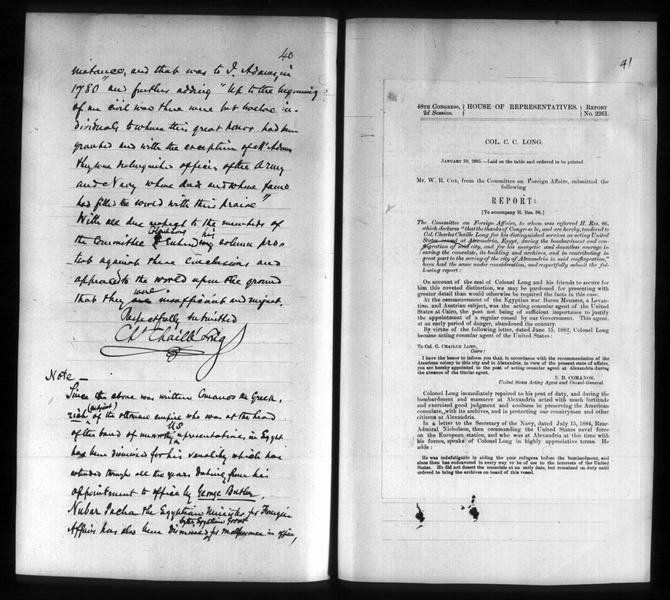 40
instance, and that was to J. Adams, in
1780 and further adding "Up to the beginning
of our civil war there were but twelve in-
dividuals to whom this great honor had been
granted and with the exception of Mr Adams
they were distinguished officers of the Army
and Navy whose deeds and whose fame
had filled the world with their praise"
With all due respect to the members of
the Committee his solemn pro-
test against these conclusions and
appeals to the world upon the ground
that they were insufficient and unjust.
Respectfully submitted
Ch. Chaillé Long
Note —
Since the above was written Comanos the Greek,
(subject) of the Ottoman empire who was at the head
of the board of US representatives, in Egypt
have been dismissed for his venality which has
extended through all the years dating from his
appointment to office by George Butler,
Nubar Pacha the Egyptian Minister for Foreign
Affairs has also been dismissed for malfeasance in office,
41
48TH CONGRESS, HOUSE OF REPRESENTATIVES. REPORT
2d Session. No. 2261.
COL. C. C. LONG.
JANUARY 10, 1885.—Laid on the table and ordered to be printed.
Mr. W. R. COX, from the Committee on Foreign Affairs, submitted the
following
REPORT:
[To accompany H. Res. 86.]
The Committee on Foreign Affairs, to whom was referred H. Res. 86,
which declares "that the thanks of Congress be, and are hereby, tendered to
Col. Charles Chaille Long for his distinguished services as acting United
States consul at Alexandria, Egypt, during the bombardment and con-
flagration of said city, and for his energetic and dauntless courage in
saving the consulate, its building and archives, and in contributing in
great part to the saving of the city of Alexandria in said conflagration,"
have had the same under consideration, and respectfully submit the fol-
lowing report:
On account of the zeal of Colonel Long and his friends to secure for
him this coveted distinction, we may be pardoned for presenting with
greater detail than would otherwise be required the facts in this case.
At the commencement of the Egyptian war Baron Menasce, a Levan-
tine, and Austrian subject, was the acting consular agent of the United
States at Cairo, the post not being of sufficient importance to justify
the appointment of a regular consul by our Government. This agent,
at an early period of danger, abandoned the country.
By virtue of the following letter, dated June 15, 1882, Colonel Long
became acting consular agent of the United States:
To Col. C. CHAILLE LONG,
Cairo:
I have the honor to inform you that, in accordance with the recommendation of the
American colony in this city and in Alexandria, in view of the present state of affairs,
you are hereby appointed to the post of acting consular agent at Alexandria during
the absence of the titular agent.
N. D. COMANOS,
United States Acting Agent and Consul-General.
Colonel Long immediately repaired to his post of duty, and during the
bombardment and massacre at Alexandria acted with much fortitude
and exercised good judgment and coolness in preserving the American
consulate, with its archives, and in protecting our countrymen and other
citizens at Alexandria.
In a letter to the Secretary of the Navy, dated July 15, 1884, Rear-
Admiral Nicholson, then commanding the United States naval force
on the European station, and who was at Alexandria at this time with
his forces, speaks of Colonel Long in highly appreciative terms. He
adds:
He was indefatigable in aiding the poor refugees before the bombardment, and
since then has endeavored in every way to be of use to the interests of the United
States. He did not desert the consulate at an early date, but remained on duty until
ordered to bring the archives on board of this vessel.